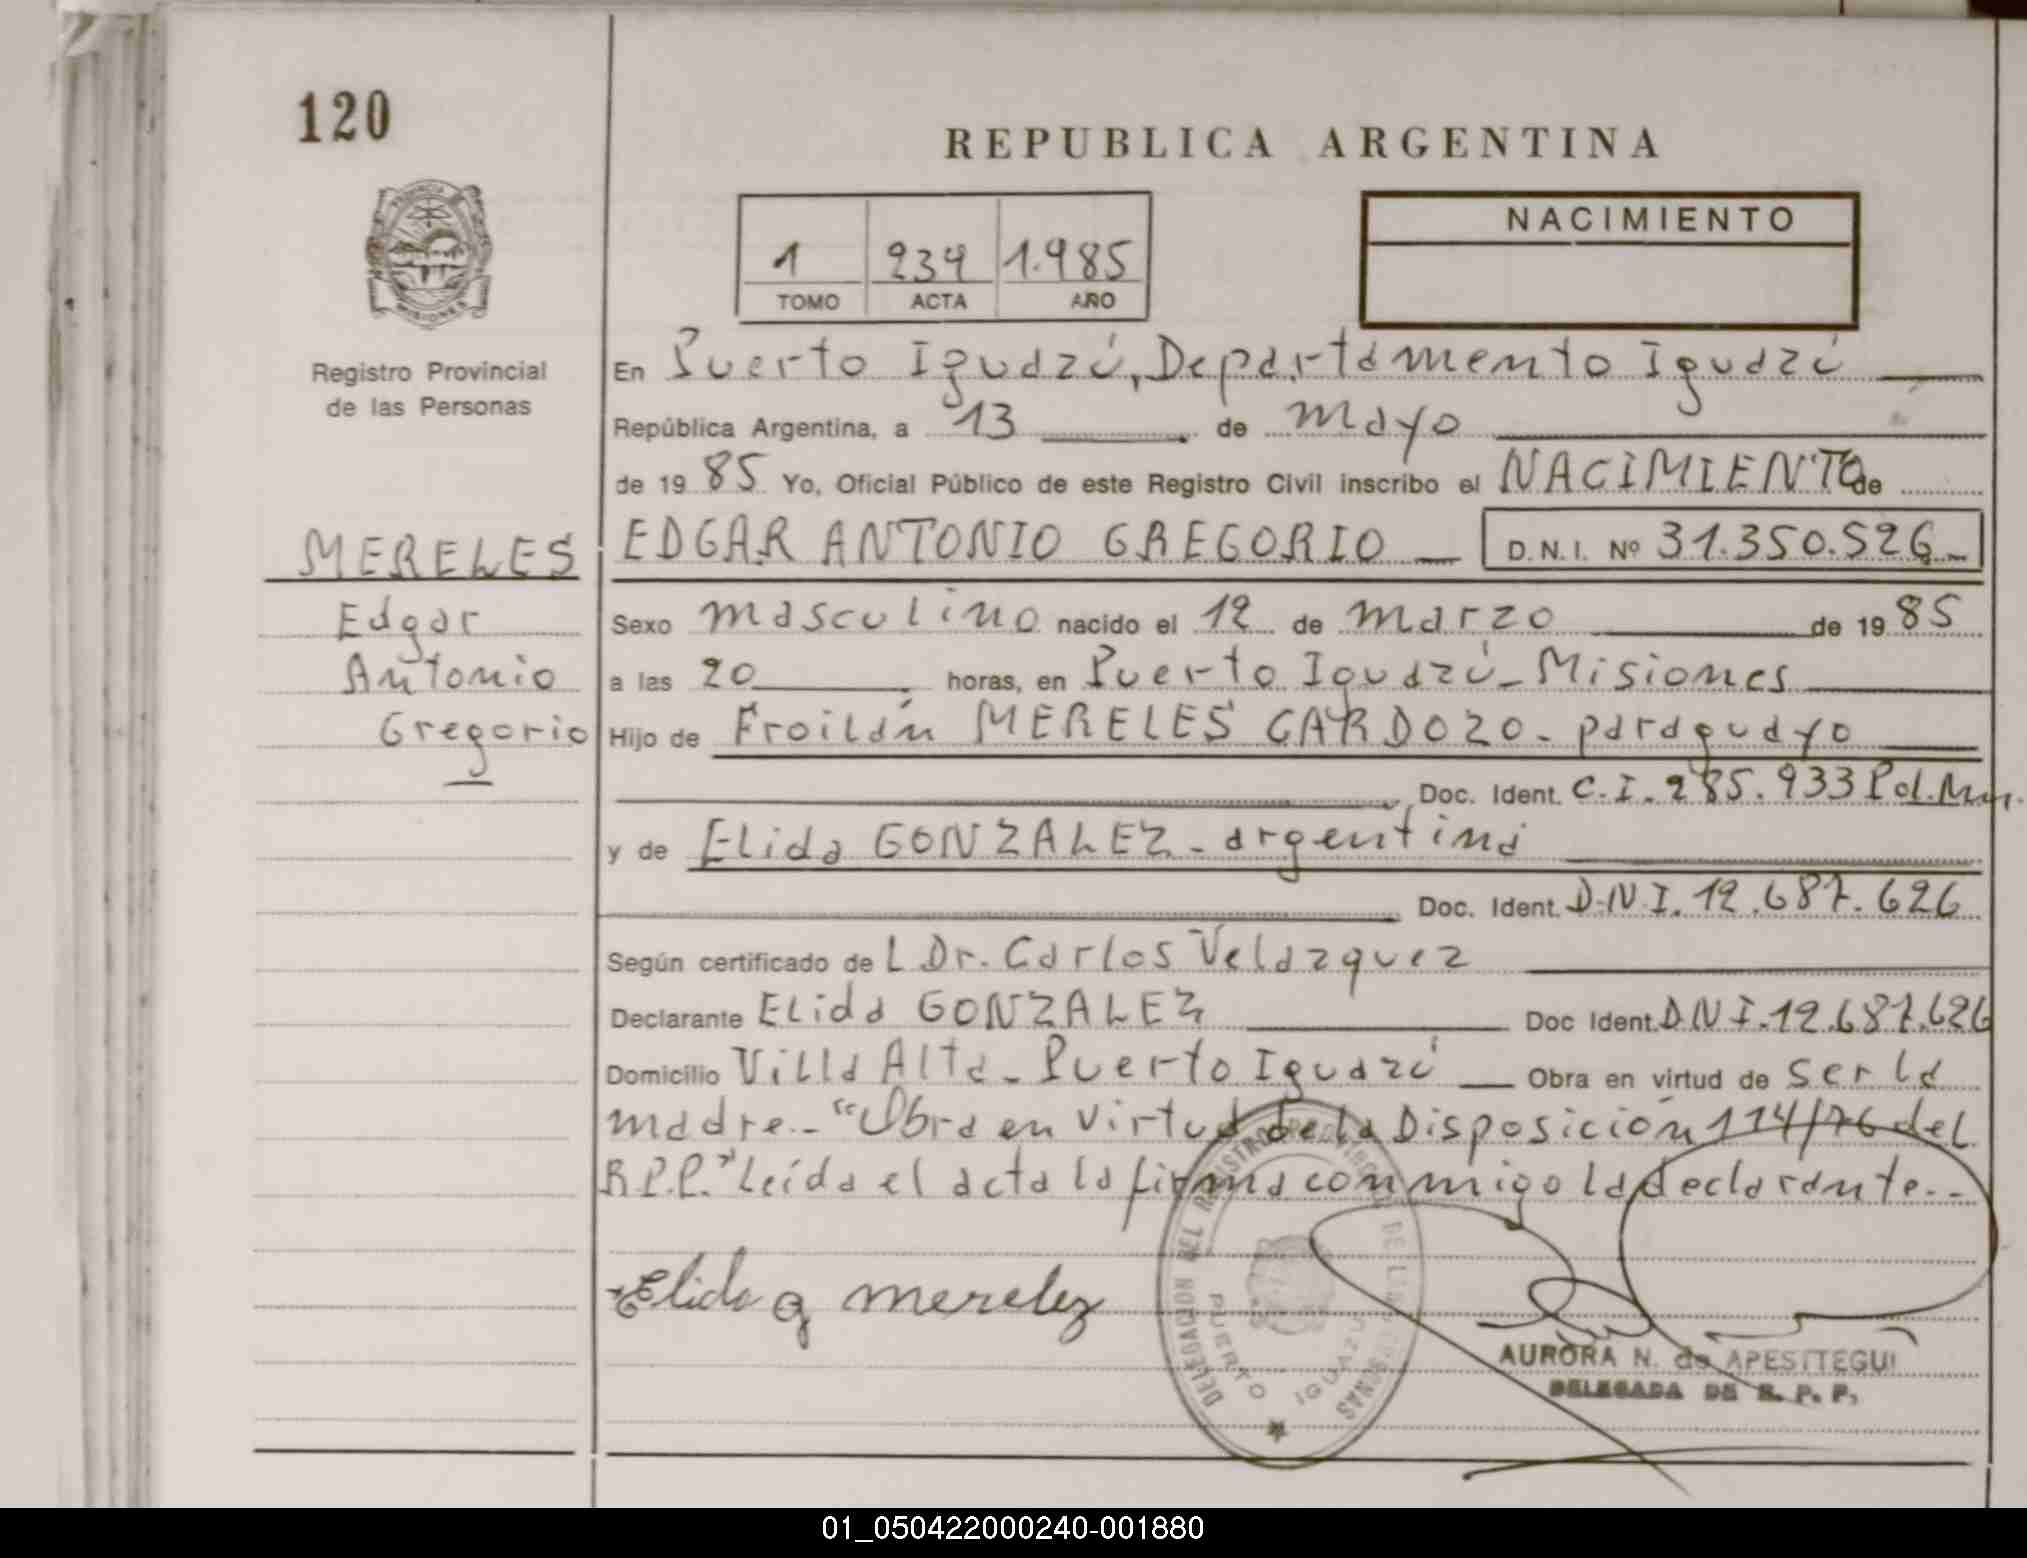 120
REPUBLICA ARGENTINA
PROVINCIA
MISIONES
NACIMIENTO
1 234 1.985
TOMO ACTA AÑO
Registro Provincial
de las Personas
En Puerto Iguazú, Departamento Iguazú
República Argentina, a 13 de mayo
de 19 85 Yo, Oficial Público de este Registro Civil inscribo el NACIMIENTO de
MERELES
EDGAR ANTONIO GREGORIO D.N.I. Nº 31.350.526
Edgar
Antonio
Gregorio
Sexo masculino nacido el 12 de marzo de 19 85
a las 20 horas, en Puerto Iguazú - Misiones
Hijo de Froilán MERELES CARDOZO - paraguayo
Doc. Ident. C.I. 285.933 Pol. Mnes.
y de Elida GONZALEZ - argentina
Doc. Ident. D.N.I. 12.687.626
Según certificado de L Dr. Carlos Velazquez
Declarante Elida GONZALEZ Doc Ident. D.N.I. 12.687.626
Domicilio Villa Alta - Puerto Iguazú Obra en virtud de ser la
madre.- "Obra en virtud de la Disposición 114/76 del
R.P.P." Leída el acta la firma conmigo la declarante.-
Elida G merelez
DELEGACION DEL REGISTRO PROVINCIAL DE LAS PERSONAS
PUERTO IGUAZU
AURORA N. de APESTTEGUI
DELEGADA DE R. P. P.
01_050422000240-001880